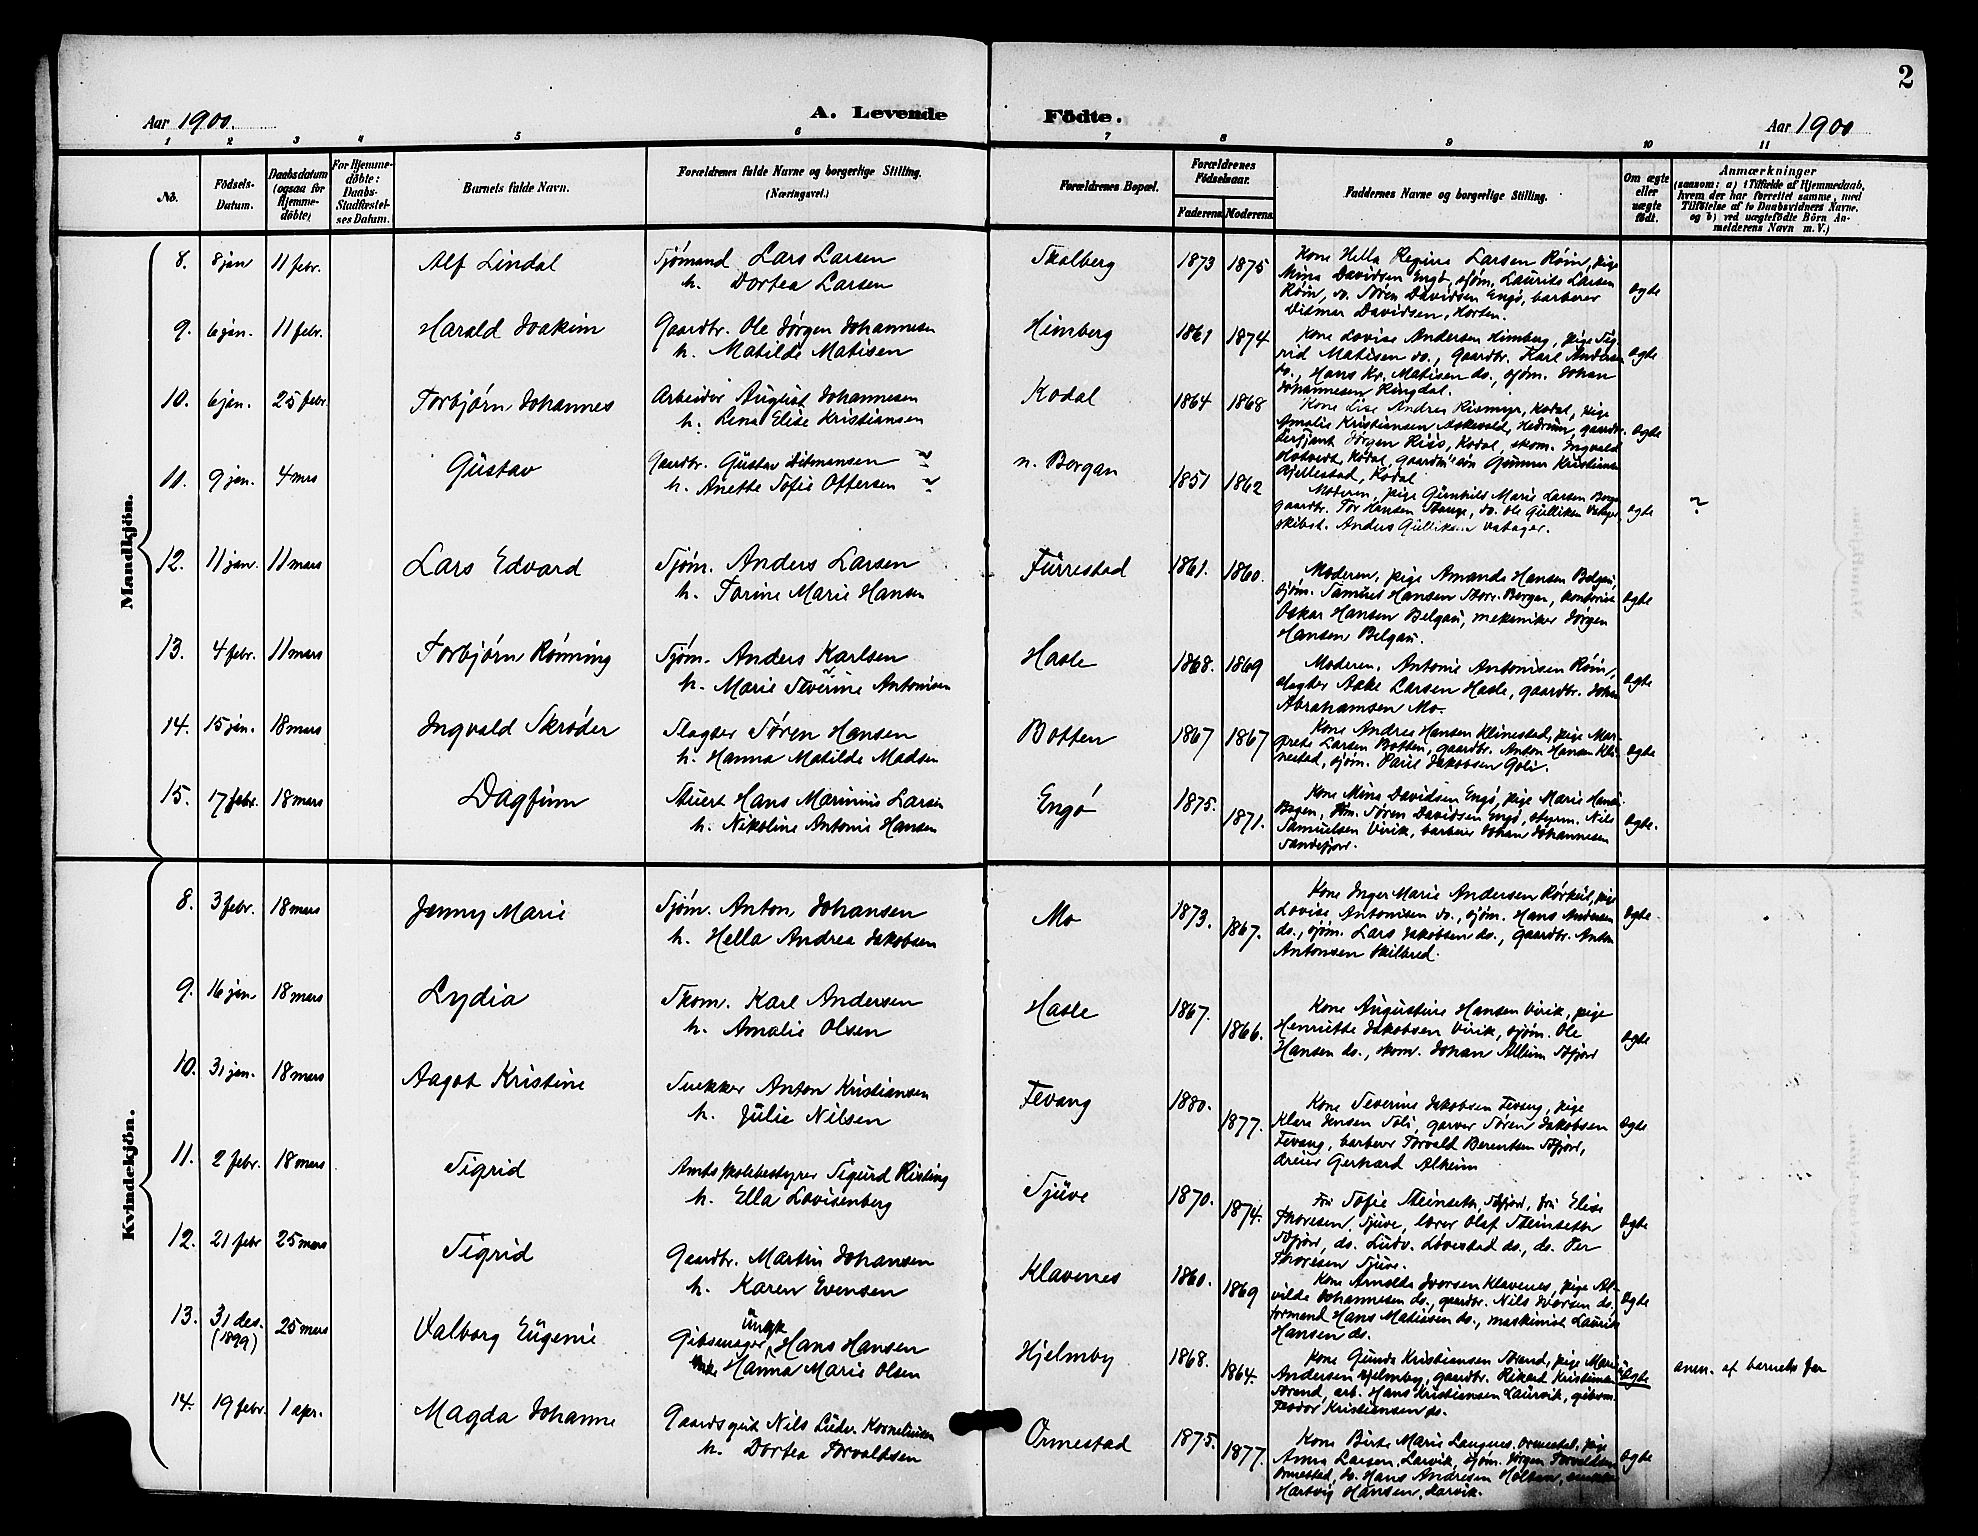 2
Aar 1900.
A. Levende Födte.
Aar 1900
1 2 3 4 5 6 7 8 9 10 11
No.
Födsels-Datum.
Daabsdatum (ogsaa for Hjemme-döbte)
For Hjemme-döbte: Daabs-Stadfæstel-ses Datum.
Barnets fulde Navn.
Forældrenes fulde Navne og borgerlige Stilling. (Næringsvei.)
Forældrenes Bopæl.
Forældrenes Födselsaar.
Faderens Moderens
Faddernes Navne og borgerlige Stilling.
Om ægte eller uægte födt.
Anmærkninger
(saasom: a) i Tilfælde af Hjemmedaab, hvem der har forrettet samme, med Tilföielse af to Daabsvidners Navne, og b) ved uægtefödte Börn An-melderens Navn m. V.)
Mandkjön.
8. 8 jan 11 febr. Alf Lindal Sjömand Lars Larsen
h. Dortea Larsen
Skolberg 1873 1875 Kone Hella Regine Larsen Röin, pige
Mina Davidsen Engö, sjöm. Laurits Larsen
Röin, do. Sören Davidsen Engö, barberer
Ditmar Davidsen, Horten.
ægte
9. 6 jan. 11 febr. Harald Joakim Gaardbr. Ole Jörgen Johannesen
h. Matilde Matisen
Himberg 1861 1874 Kone Lovise Andersen Himberg, pige Sig-
rid Matisen do., gaardbr. Karl Andersen
do., Hans Kr. Matisen ds., sjöm. Johan
Johannesen Ringdal.
ægte
10. 6 jan. 25 febr. Torbjörn Johannes Arbeider August Johannesen
h. Lina Elise Kristiansen
Kodal 1864 1868 Kone Lise Andrea Kodal, pige
Amalie Kristiansen Askevold, Hedrum, gaardbr.
Jörgen Kodal, skom. Ingvald
Kodal, gaardm. sön Gunnar Kristiansen
Gjellestad, Kodal
ægte
11. 9 jan. 4 mrs Gustav Gaardbr. Gustav Ditmansen
h. Anette Sofie Ottersen
n. Bergan 1851 1862 Moderen, pige Gunhild Marie Larsen
gaardbr. Tor Hansen Stange, do. Ole Gulliksen
skibst. Anders Gulliksen
ægte
12. 11 jan. 11 mars Lars Edvard Sjöm. Anders Larsen
h. Torine Marie Hansen
Furrestad 1861. 1860. Moderen, pige Amanda Hansen Belgau,
sjöm. Samuel Hansen Bergan, kontorist
Oskar Hansen Belgau, mekaniker Jörgen
Hansen Belgau.
ægte
13. 4 febr. 11 mars Torbjörn Rönning Sjöm. Anders Karlsen
h. Marie Severine Antonisen
Hasle 1868. 1869 Moderen, Antonie Antonisen Röin,
slagter Aake Larsen Hasle, gaardbr. Johan
Abrahamsen Mo.
ægte
14. 15 jan. 18 mars Ingvald Skröder Slagter Sören Hansen
h. Hanna Matilde Madsen
Botten 1867 1867 Kone Andrea Hansen Klinestad, pige Mar-
grete Larsen Botten, gaardbr. Anton Hansen Kli-
nestad, sjöm. Paul Jakobsen Goli.
ægte
15. 17 febr. 18 mars Dagfinn Stuert Hans Marinius Larsen
h. Nikoline Antonie Hansen
Engö 1875. 1871. Kone Mina Davidsen Engö, pige Marie Hansen
Bogen, sjöm. Sören Davidsen Engö, styrm. Nils
Samuelsen Virik, barberer Johan Johannesen
Sandefjord.
ægte.
Kvindekjön.
8. 3 febr. 18 mars Jenny Marie Sjöm. Anton Johansen
h. Hella Andrea Jakobsen
Mo 1873. 1867. Kone Inger Marie Andersen Rörkul, pige
Lovise Antonisen do., sjöm. Hans Andersen
ds., sjöm. Lars Jakobsen ds., gaardbr. Anton
Antonsen Skilbred.
ægte
9. 16 jan 18 mars Lydia Skom. Karl Andersen
h. Amalie Olsen
Hasle 1867. 1866. Kone Augustine Hansen Virik, pige
Henriette Jakobsen Virik, sjöm. Ole
Hansen ds., skom. Johan Allum Sfjord
ægte
10. 31 jan. 18 mars Aagot Kristine Snekker Anton Kristiansen
h. Julie Nilsen
Fevang 1880. 1877. Kone Severine Jakobsen Fevang, pige
Klara Jensen Soli, garver Sören Jakobsen
Fevang, barberer Torvald Berentsen Sfjord,
dreier Gerhard Alheim
ægte
11. 2 febr. 18 mars Sigrid Amtsskolebestyrer Sigurd Risting
h. Ella Lovisenberg
Sjuve 1870. 1874. Fru Sofie Steinseth, Sfjord, fru Elise
Thoresen, Sjuve, lærer Olaf Steinseth
Sfjord, ds. Ludv. Lövestad ds., ds. Per
Thoresen Sjuve.
ægte
12. 21 febr 25 mars Sigrid Gaardbr. Martin Johansen
h. Karen Evensen
Klavenes 1860. 1869 Kone Arnolda Iversen Klavenes, pige Al-
vilde Johannesen ds., gaardbr. Nils Iversen ds.,
formand Hans Matisen ds., maskinist Laurik
Hansen ds.
ægte
13. 31 des. (1899) 25 mars Valborg Eugenie Gibsmager, Ungk Hans Hansen
Hanna Marie Olsen
Hjelmby 1868. 1864. Kone Gunda Kristiansen Strand, pige Marie
Andersen Hjelmby, gaardbr. Rikard Kristiansen
Strand, arb. Hans Kristiansen Laurvik, gibsm.
Teodor Kristiansen ds.
uægte anm. af barnets far
14. 19 febr. 1 apr. Magda Johanne Gaardsgut Nils Luder Kornelius­sen
h. Dortea Torvaldsen
Ormestad 1875. 1877. Kone Birte Marie Langnes, Ormestad, pige
Anna Larsen, Larvik, sjöm. Jörgen Torvaldsen
Ormestad, do. Hans Andresen Holtan,
Hartvig Hansen, Larvik.
ægte